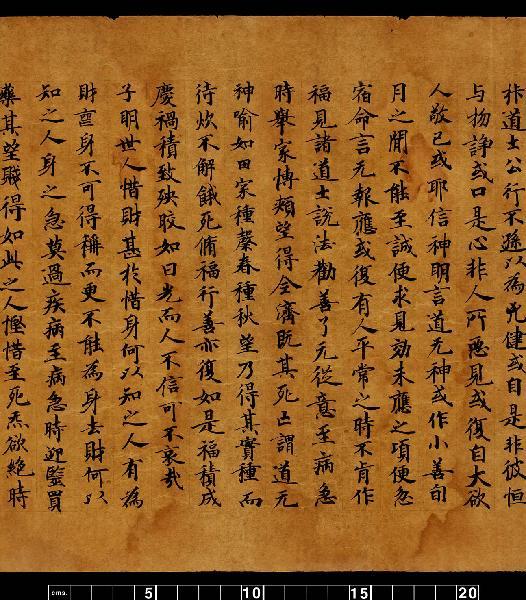 拤道士公行不遜以為先健或自是非彼恒
与物諍或口是心非人所惡見或復自大欲
人敬己或耶信神明言道无神或作小善旬
月之間不能至誠便求見効未應之頃便怱
宿命言无報應或復有人平常之時不肯作
福見諸道士說法勸善了无從意至病急
時舉家愽頰望得全濟既其死亡謂道无
神喻如田家種蘩春種秋望乃得其實種而
待炊不解餓死脩福行善亦復如是福積成
慶禍積致殃皎如日光而人不信可不哀哉
子明世人惜財甚於惜身何以知之人有為
財啚身不可得稱而更不能為身去財何以
知之人身之急莫過疾病至病急時迎毉買
藥其望賤得如此之人慳惜至死炁欲絕時